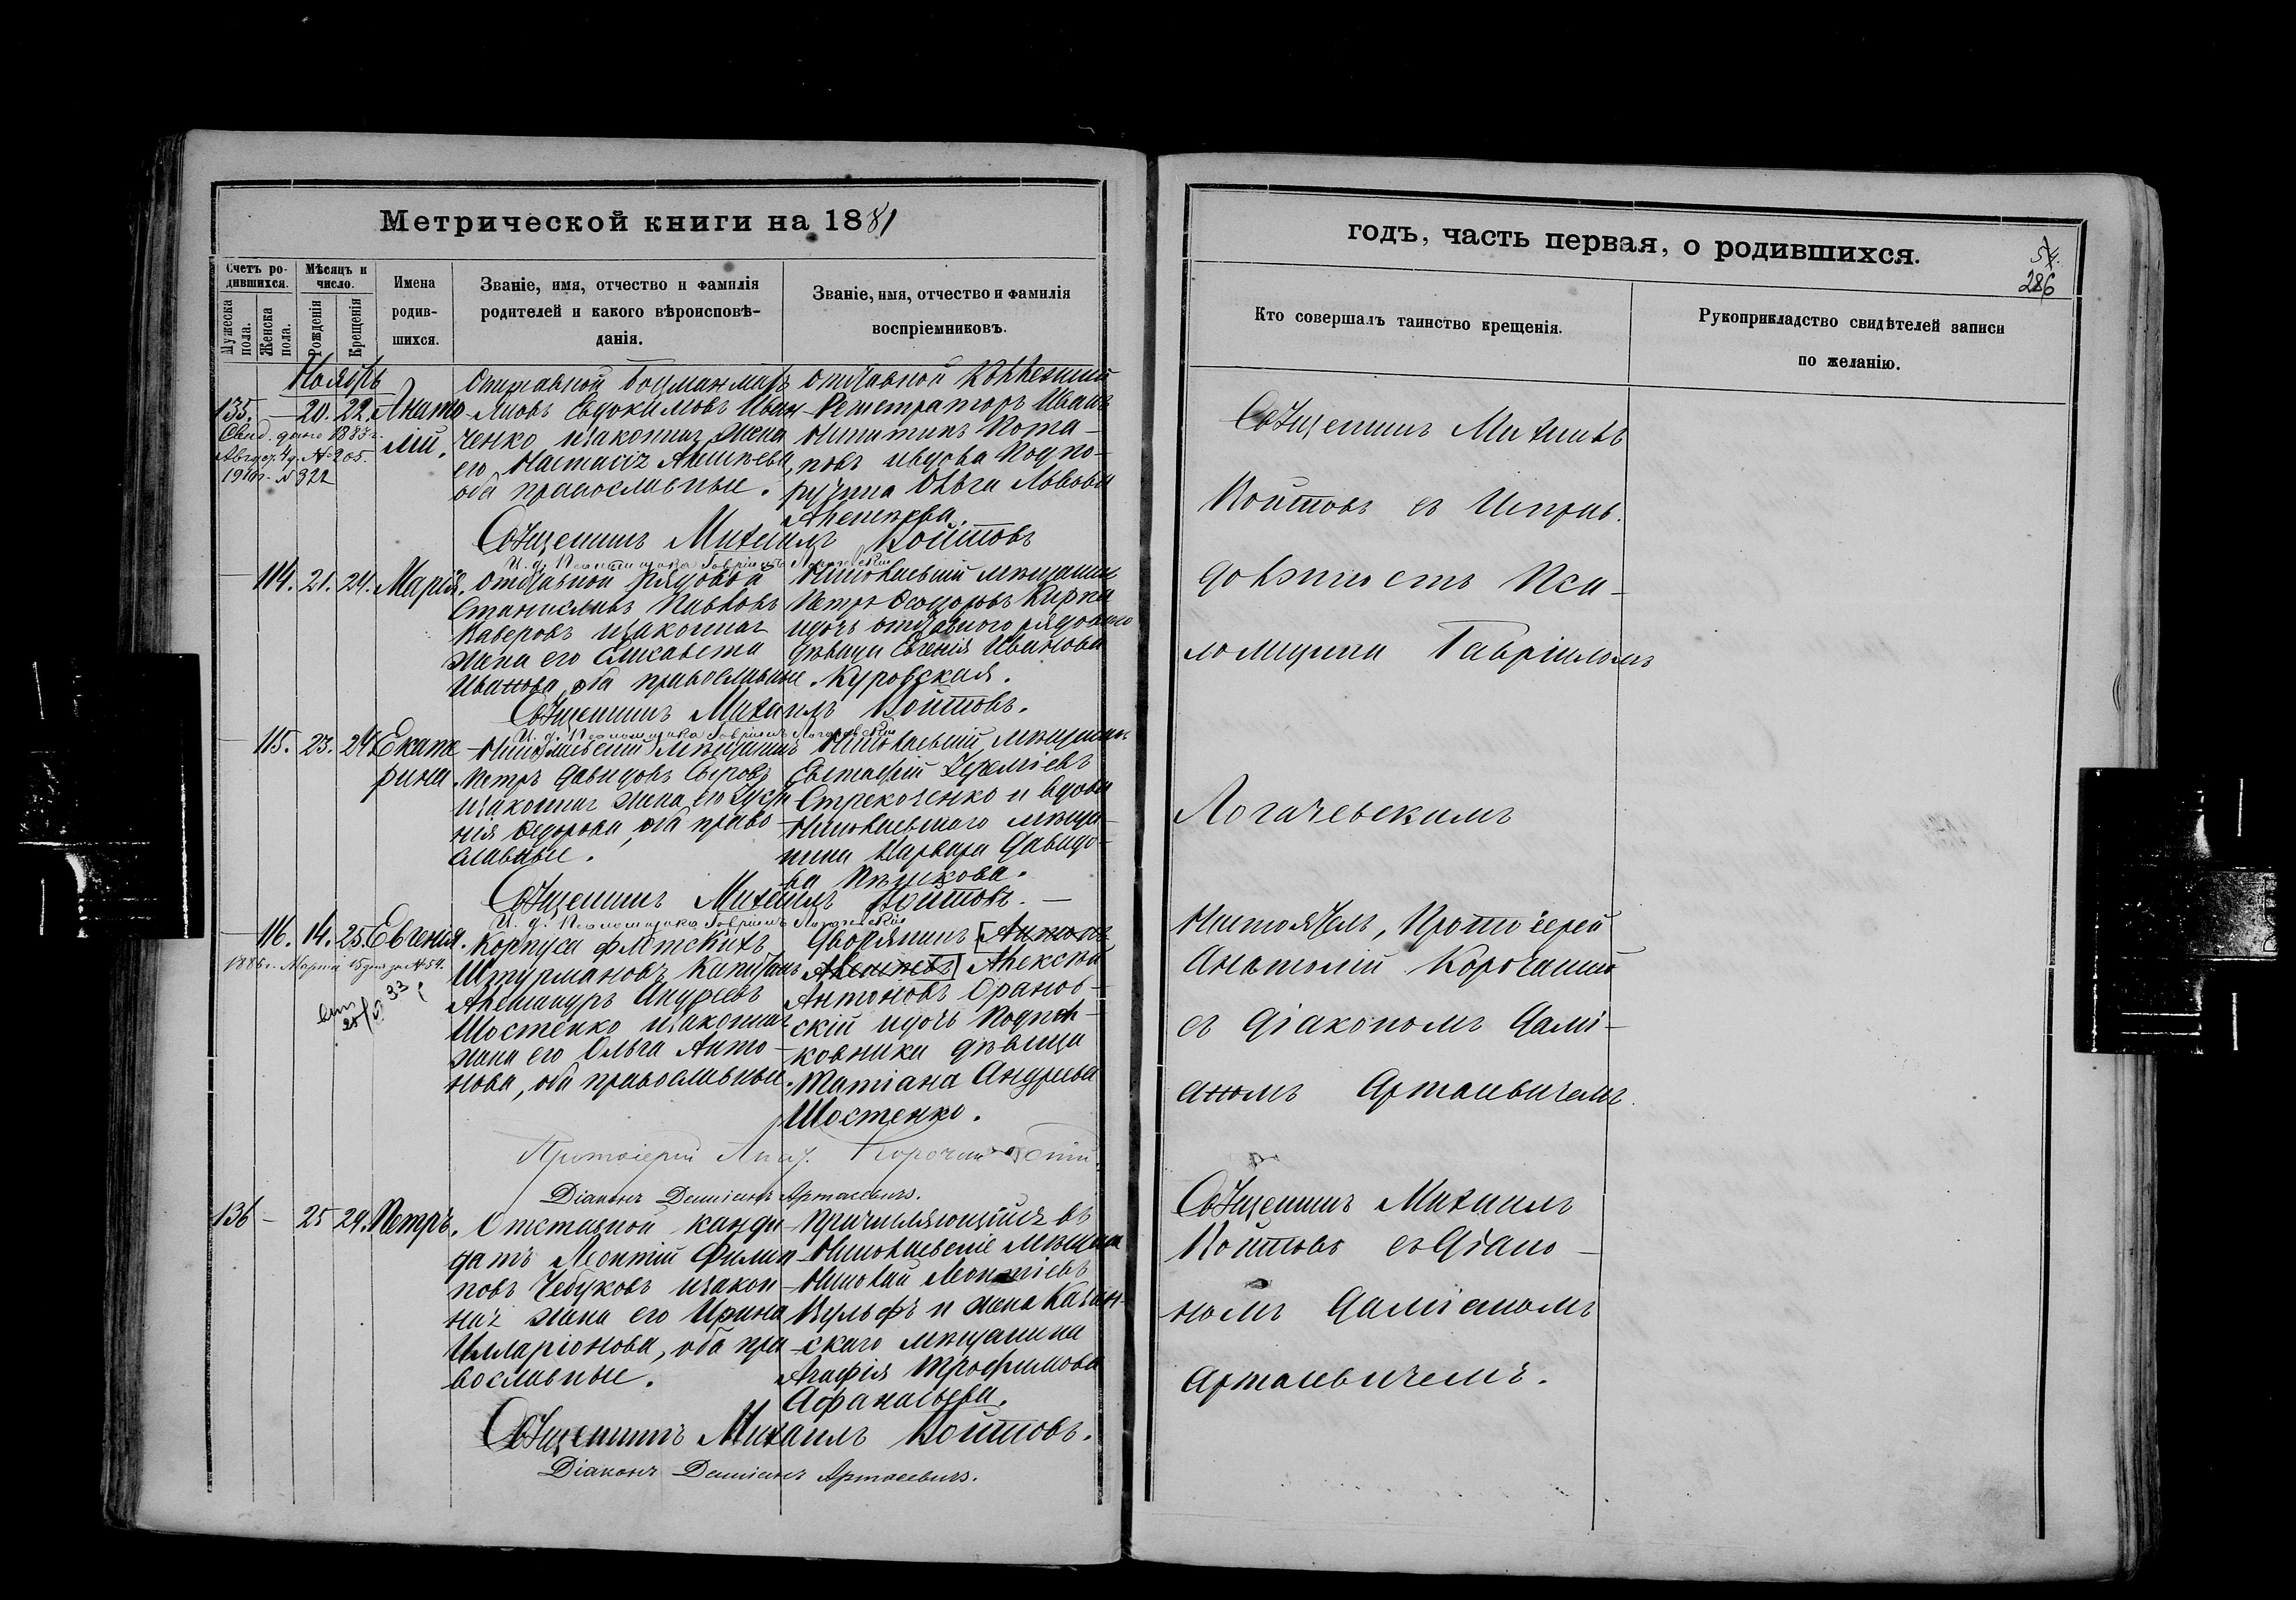 Метрической книги на 1881
Счетъ ро-
дившихся.
Мужеска
пола.
Женска
пола.
Мѣсяцъ и
число.
Рожденія
Крещенія
Имена
родив-
шихся.
Званіе, имя, отчество и фамилія
родителей и какого вѣроисповѣ-
данія.
Званіе, имя, отчество и фамилія
воспріемниковъ.
Ноябрь
135. — 20. 22. Анато-
лій.
Свид. дано 1883 г.
Август. 4 д. № 205.
1910 г. № 322
Отставной боцманматъ
Евдокимовъ Иван-
ченко изаконная жена
его Настасія Алексѣева,
оба православные.
Отставной Коллежскій
Регистраторъ Иванъ
Никитинъ Пота-
повъ ивдова Подпо-
ручика Ольга Львова
Алексѣева.
Священникъ Михаилъ Войтовъ
И. д. Псаломщика Гавріилъ Логачевскій
— 114. 21. 24. Марія.
Отставной рядовой
Станиславъ Павловъ
Каверовъ изаконная
жена его Елисавета
Иванова, оба православные.
Николаевскій мѣщанинъ
Петръ Ѳеодоровъ Кирпа
идочь отставного рядового
дѣвица Евгенія Иванова
Куровская.
Священникъ Михаилъ Войтовъ.
И. д. Псаломщика Гавріилъ Логачевскій
— 115. 23. 24 Екате-
рина.
Николаевскій мѣщанинъ
Петръ Давидовъ Сѣровъ
изаконная жена его
Ѳедорова, оба право-
славные.
Николаевскій мѣщанинъ
Евстафій
Стрекоченко и вдова
Николаевскаго мѣща-
нина Варвара Давидо-
ва Пѣшкова.
Священникъ Михаилъ Войтовъ. —
И. д. Псаломщика Гавріилъ Логачевскій
— 116. 14. 25. Евгенія.
1886 г. Марта 15 дня за № 54.
Корпуса флотскихъ
Штурмановъ Капитанъ
Александръ Андреевъ
Шостенко изаконная
жена его Ольга Анто-
нова, оба православные.
Дворянинъ [Антонъ
Алексѣевъ] Алексѣй
Антоновъ Оранов-
скій идочь Подпол-
ковника дѣвица
Татіана Андреева
Шостенко.
Протоіерей Анат. Корочанскій.
Діаконъ Даміанъ Артасевичъ.
136 — 25 29. Петръ.
Отставной канди-
датъ Леонтій Филип-
повъ Чебуковъ изакон-
ная жена его Ирина
Илларіонова, оба пра-
вославные.
Причисляющійся въ
Николаевскіе мѣщане
Николай Леонтіевъ
Вульфъ и жена Казан-
скаго мѣщанина
Агафія Трофимова
Афанасьева.
Священникъ Михаилъ Войтовъ.
Діаконъ Даміанъ Артасевичъ.
годъ, часть первая, о родившихся.
54.
286
Кто совершалъ таинство крещенія.
Рукоприкладство свидѣтелей записи
по желанію.
Священникъ Михаилъ
Войтовъ съ Исправ.
должность Пса-
ломщика Гавріиломъ
Логачевскимъ
Настоятель, Протоіерей
Анатолій Корочанскій
съ Діакономъ Дамі-
аномъ Артасевичемъ.
Священникъ Михаилъ
Войтовъ съ Діако-
номъ Даміаномъ
Артасевичемъ.